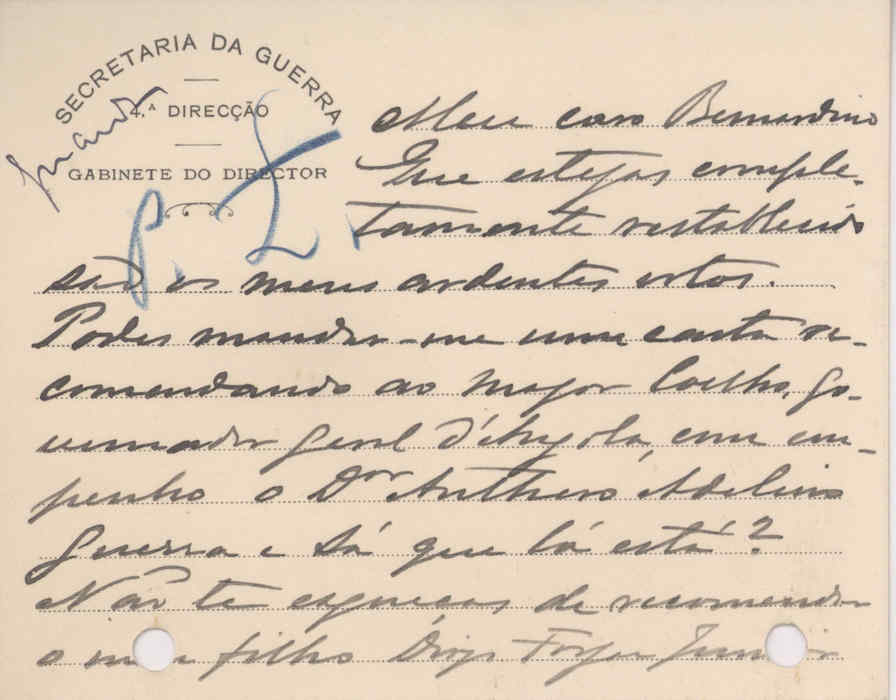 SECRETARIA DA GUERRA
4.ª DIRECÇÃO
GABINETE DO DIRECTOR
Meu caro Bernardino
Que estejas comple-
tamente restabelecido
são os meus ardentes votos.
Podes mandar-me uma carta re-
comendando ao Major Coelho, go-
vernador geral d'Angola, com em-
penho o Dor Anthero Adelino
Guerra e Sá que lá está?
Não te esqueças de recomendar
o meu filho Junior